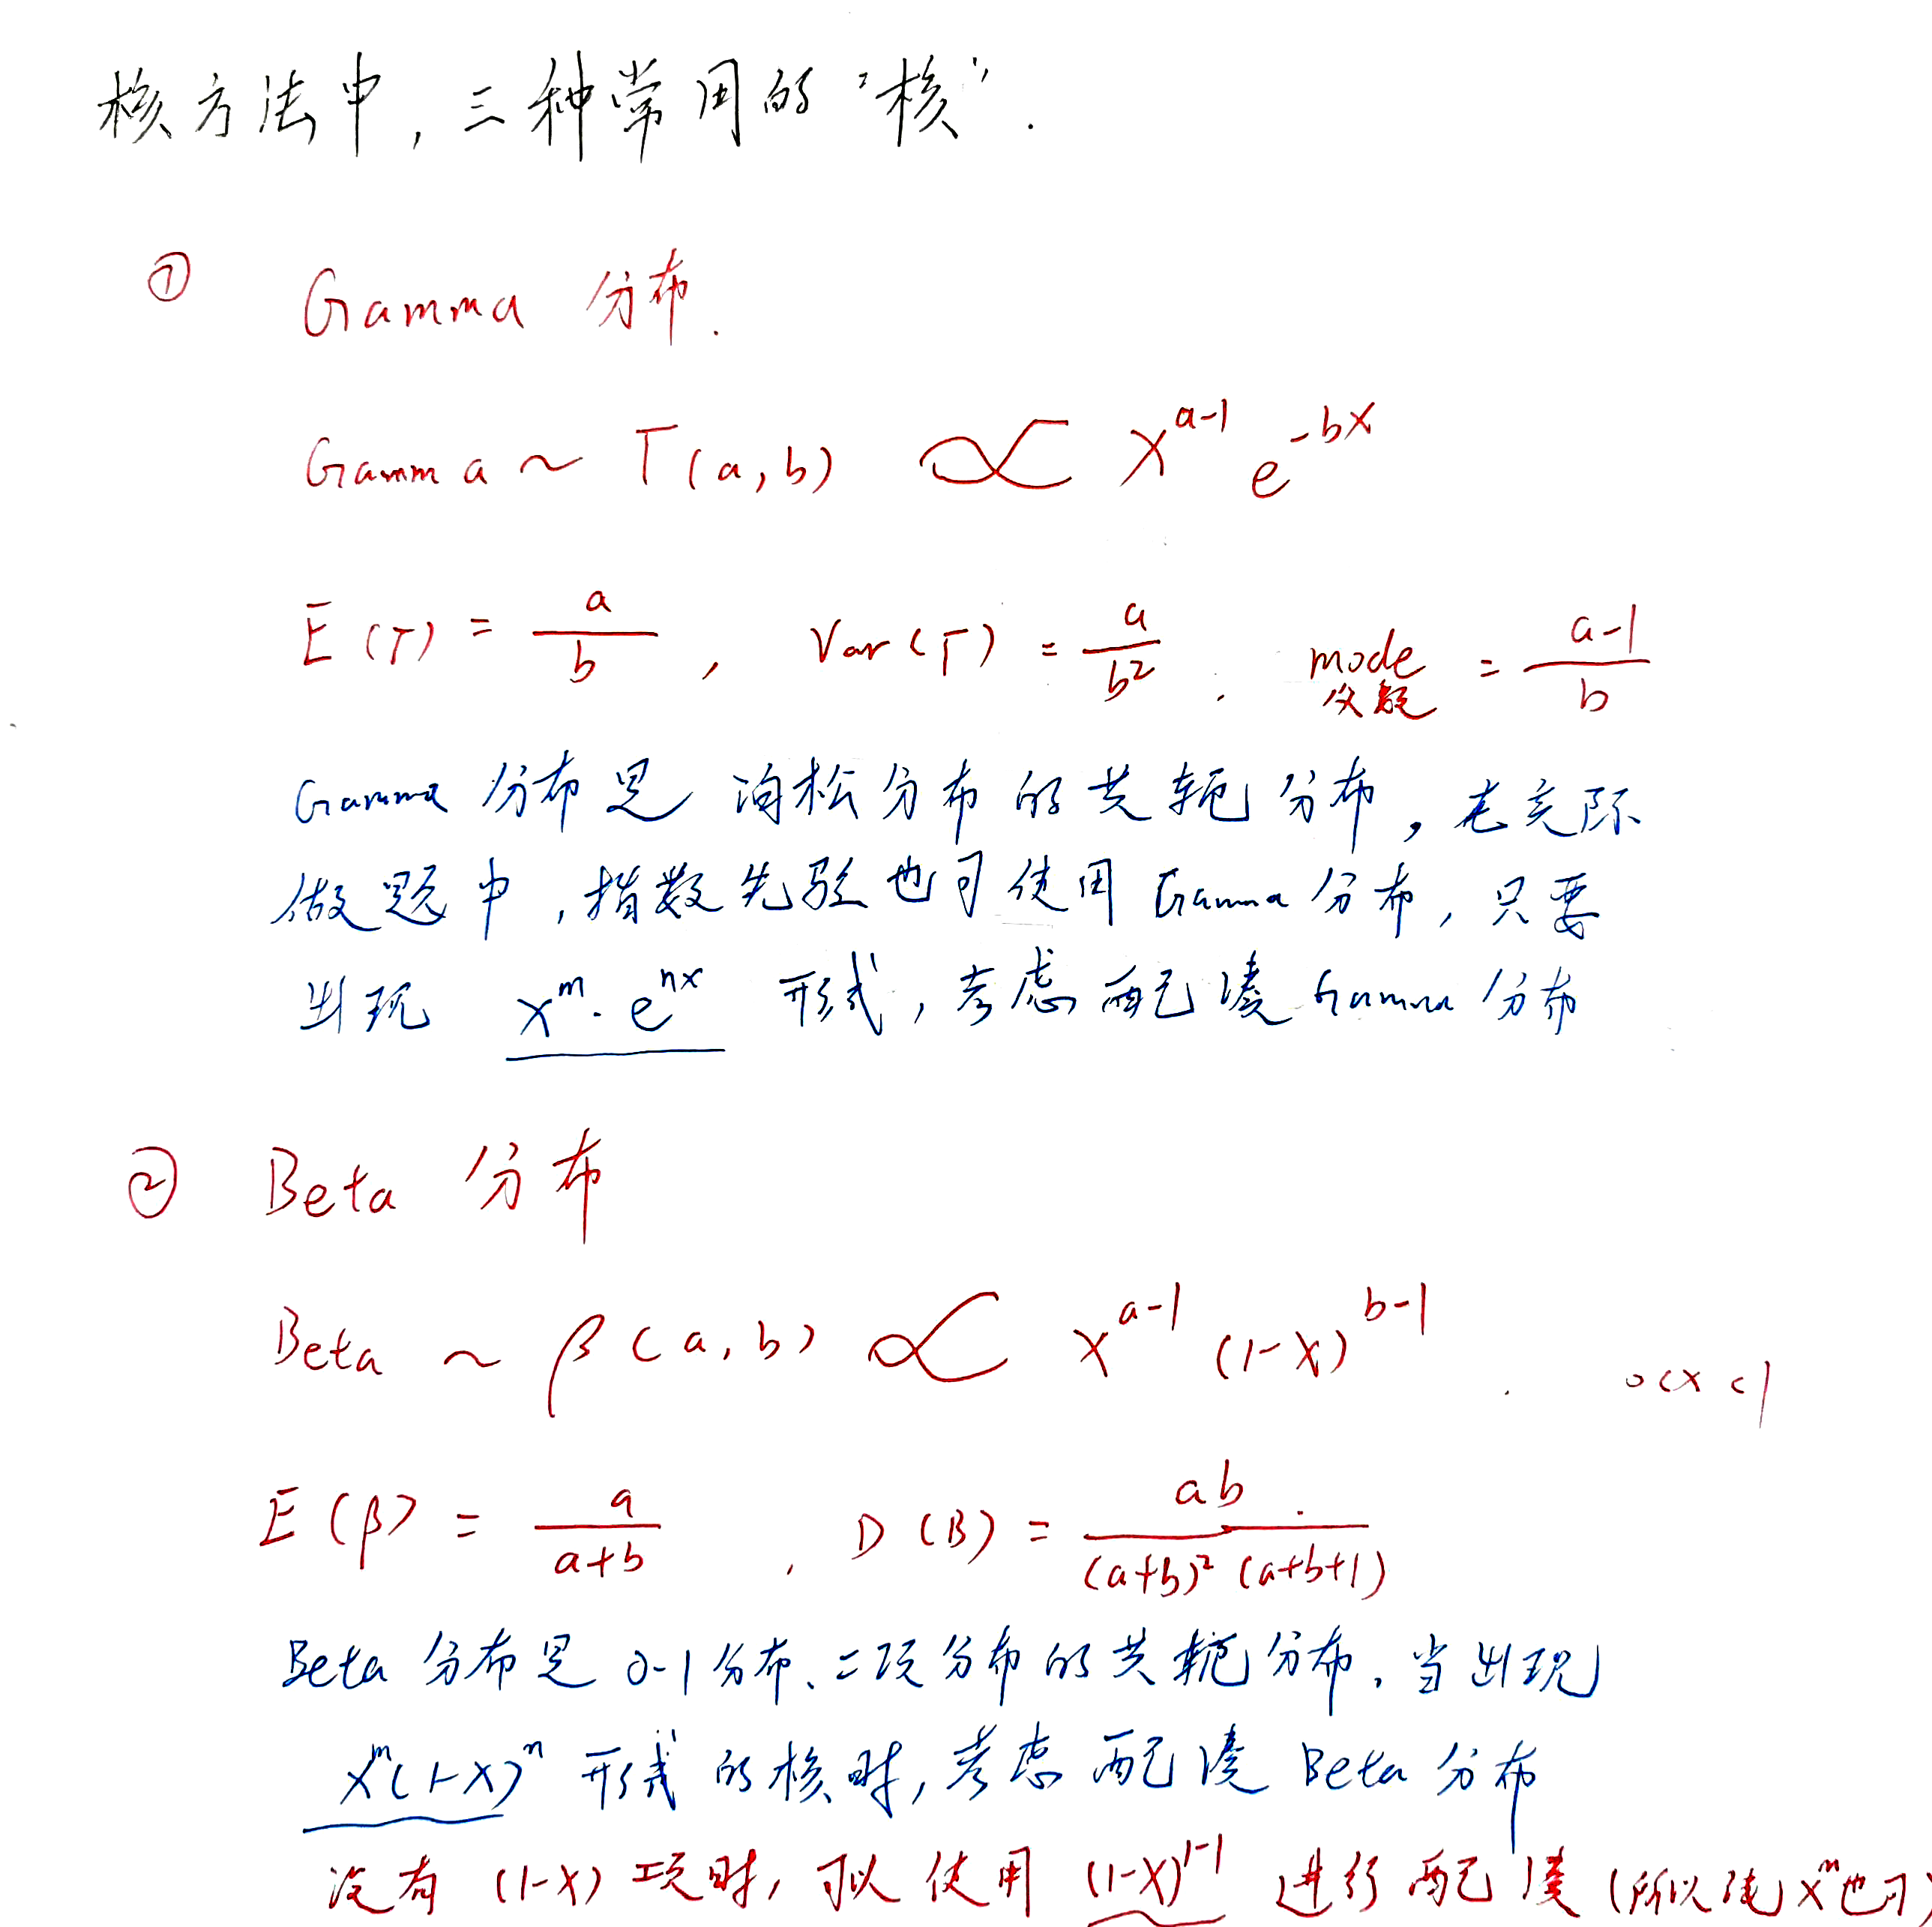 核方法中，三种常用的“核”.
① Gamma 分布.
Gamma ~ Γ(a,b) ∝ x^{a-1} e^{-bx}
E(Γ) = a/b , Var(Γ) = a/b² . mode 众数 = (a-1)/b
Gamma 分布是 泊松分布的共轭分布，在实际
做题中，指数先验也可使用 Gamma 分布，只要
出现 x^m · e^{nx} 形式，考虑配凑 Gamma 分布
② Beta 分布
Beta ~ β(a,b) ∝ x^{a-1} (1-x)^{b-1} . 0<x<1
E(β) = a/(a+b) , D(β) = ab/((a+b)²(a+b+1))
Beta 分布是 0-1分布、二项分布的共轭分布，当出现
x^m(1-x)^n 形式的核时，考虑配凑 Beta 分布
没有 (1-x) 项时，可以使用 (1-x)^{1-1} 进行配凑 (所以纯x^m也可)